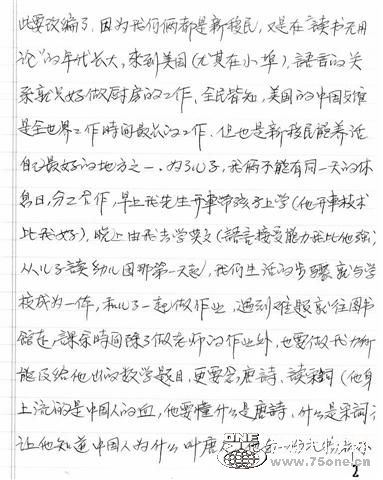 此要改编了,因为我们俩都是新移民,又是在"读书无用
论"的年代长大,来到美国(尤其在小埠),語言的关
系就只好做厨房的工作,全民皆知,美国的中国餐館
是全世界工作时间最长的工作,但也是新移民能养活
自己最好的地方之一。为了儿子,我俩不能有同一天的休
息日,分工合作,早上我先生开車带孩子上学(他开車技术
比我好),晚上由我去学英文(語言接受能力我比他强)
从儿子讀幼儿园那第一天起,我们生活的步驟就与学
校成为一体,和儿子一起做作业,遇到难题就往图书
館走,課余时间除了做老师的作业外,也要做我力所
能及给他出的数学题目,更要念唐詩,读宋詞(他身
上流的是中国人的血,他要懂什么是唐詩,什么是宋詞;
让他知道中国人为什么叫唐人
ONE
www.75one.cn
2